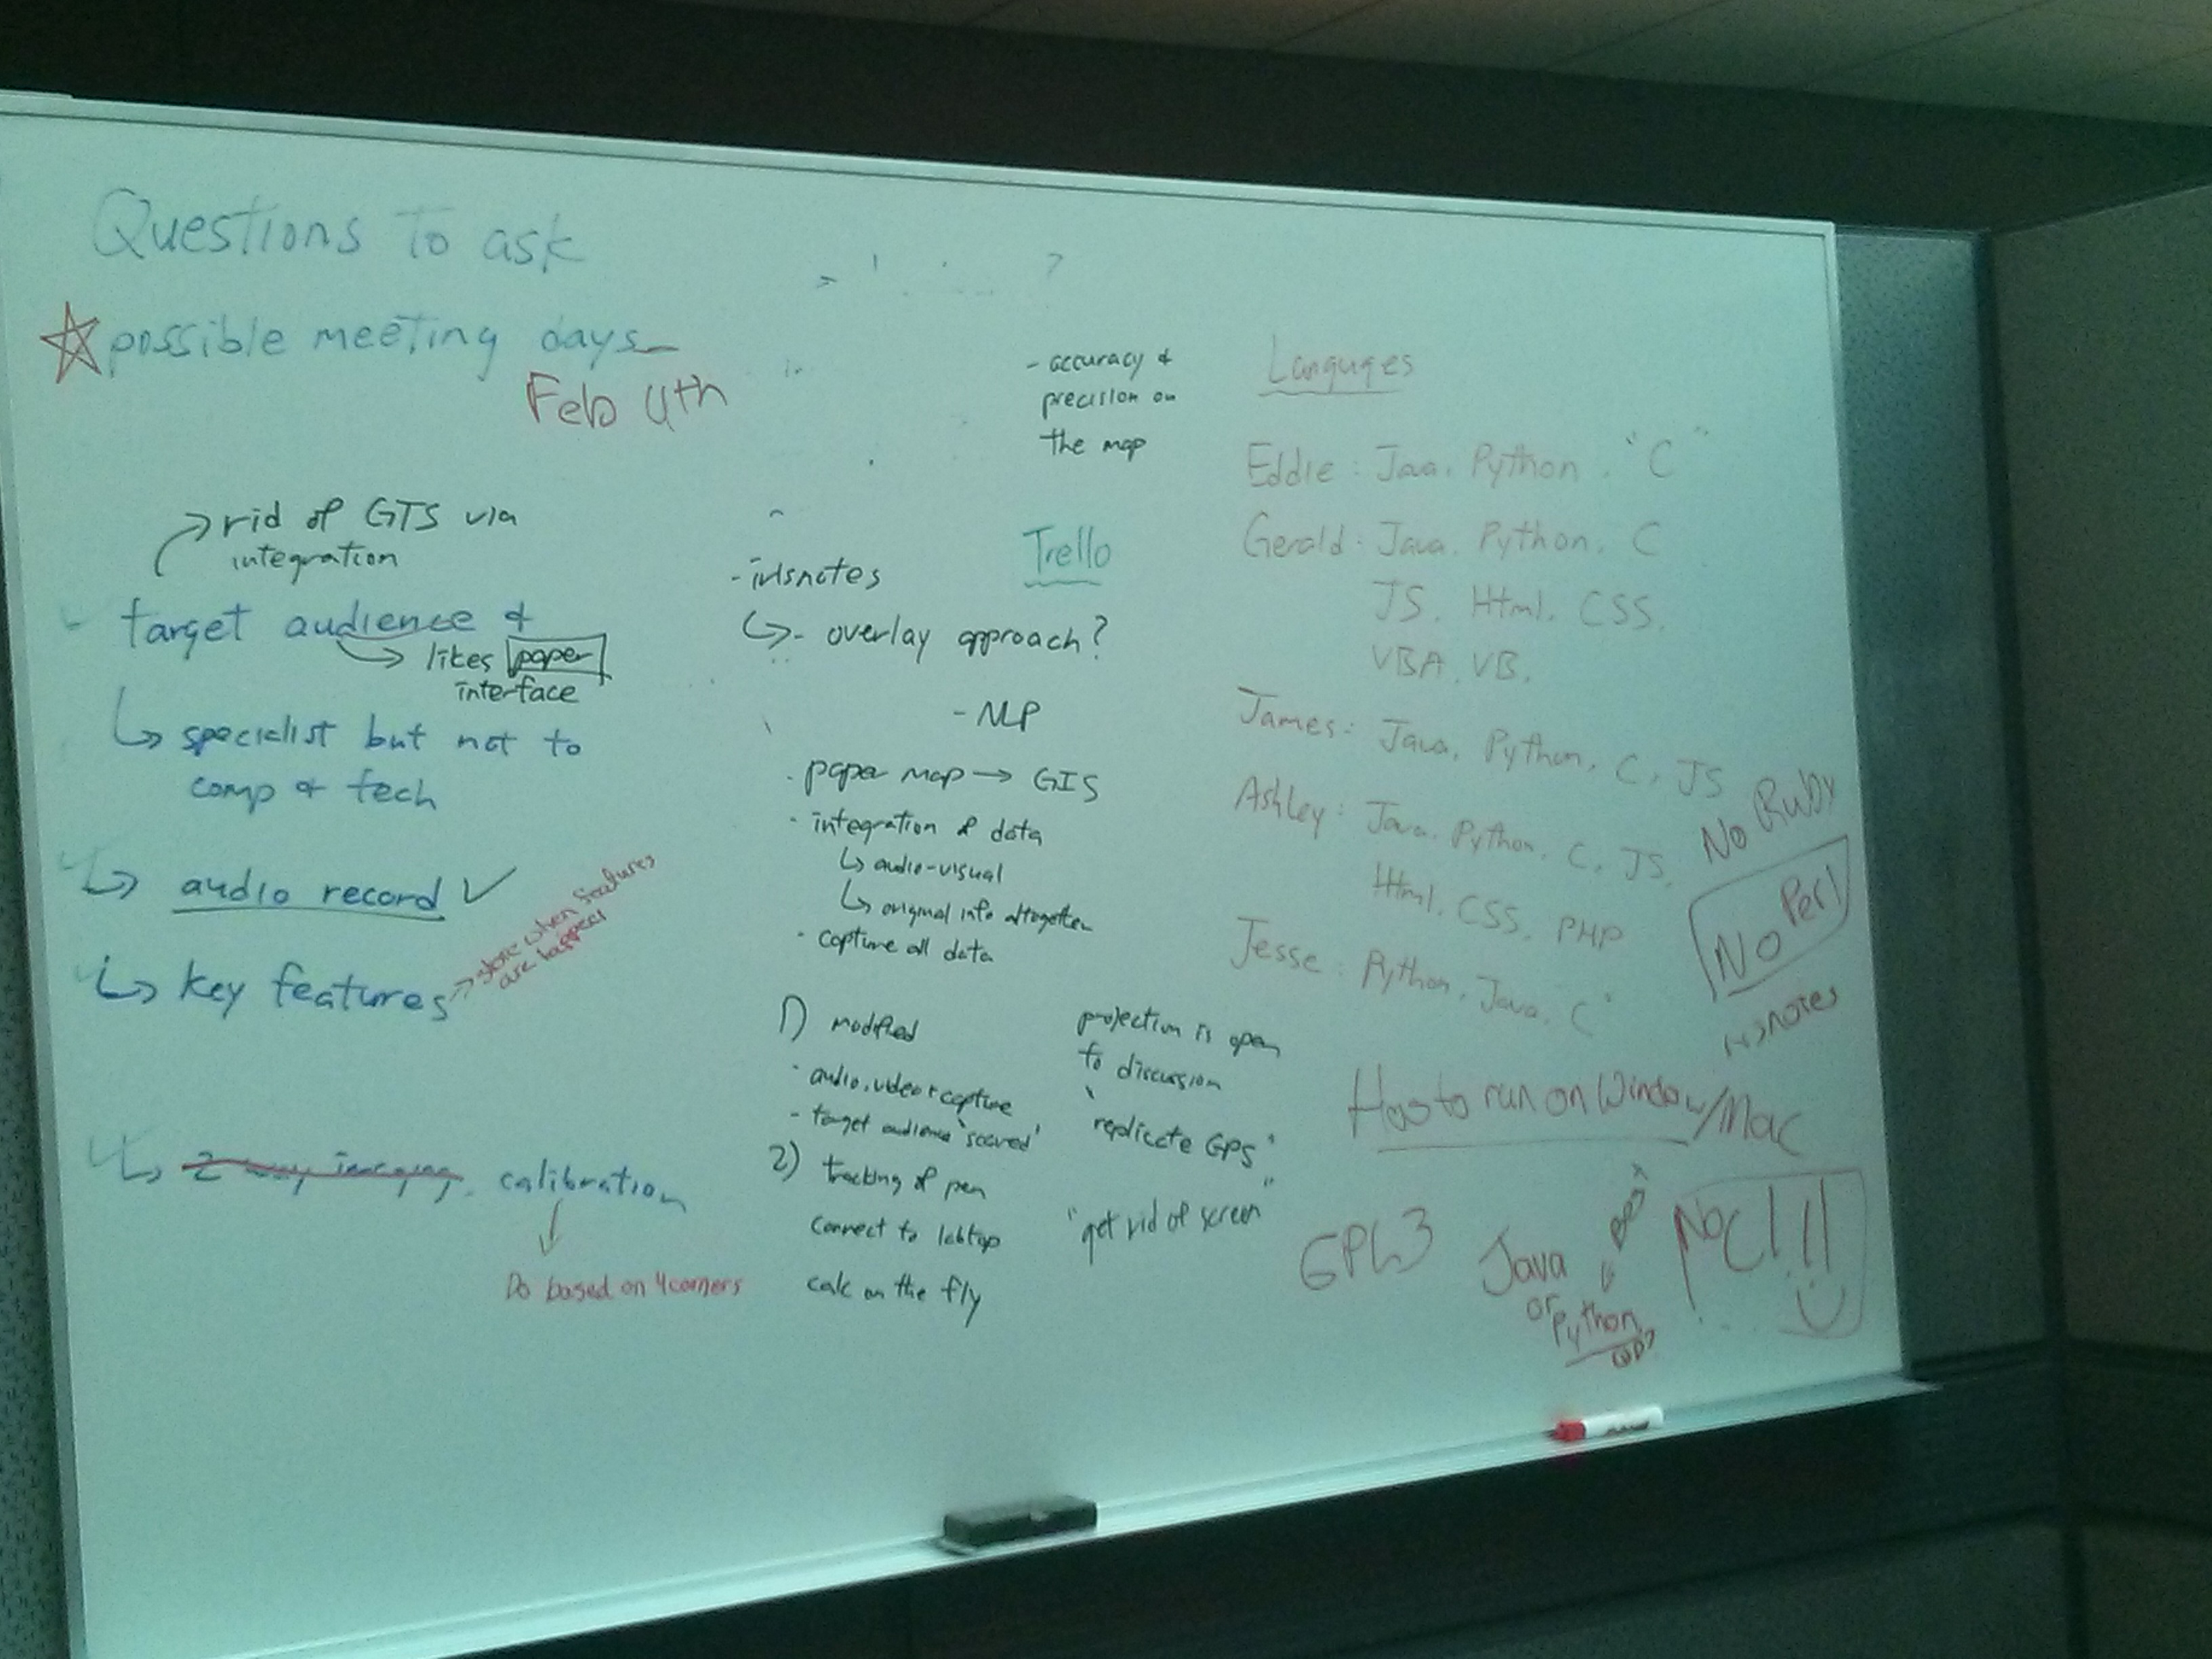 Questions To ask
possible meeting days
Feb 4th
rid of GIS via
integration
target audience &
likes paper
interface
specialist but not to
comp & tech
audio record ✓
key features
store when features
are tapped
calibration
Do based on 4 corners
- accuracy &
precision on
the map
Trello
- irlsnotes
- overlay approach?
- NLP
· paper map → GIS
· integration of data
audio-visual
original info altogether
· capture all data
1) modified
· audio, video + capture
- target audience 'scared'
2) tracking of pen
connect to labtop
calc on the fly
projection is open
to discussion
"replicate GPS"
"get rid of screen"
Languges
Eddie: Java, Python, "C"
Gerald: Java, Python, C
JS, Html, CSS,
VBA, VB,
James: Java, Python, C, JS
Ashley: Java, Python, C, JS,
Html, CSS, PHP
Jesse: Python, Java, C"
No Ruby
No Perl
Has to run on Window/Mac
GPL3
Java
or
Python
No C!!!